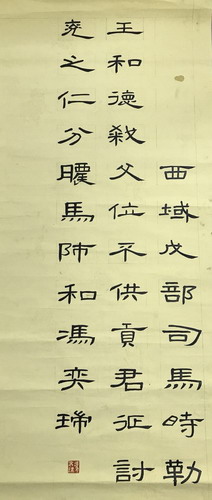 西域戊部司馬時勒
王和德殺父位不供貢君征討
兗之仁分馬師和馮奕瑞